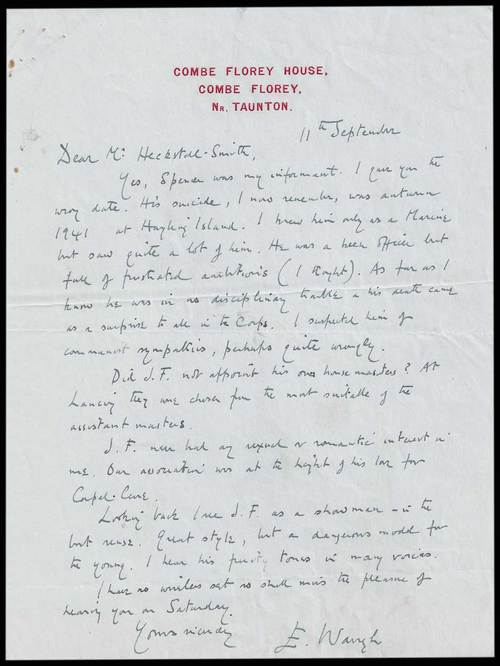 COMBE FLOREY HOUSE,
COMBE FLOREY,
NR. TAUNTON.
11th September
Dear Mr Heckstall-Smith,
Yes, Spencer was my informant. I gave you the
wrong date. His suicide, I now remember, was autumn
1941 at Hayling Island. I knew him only as a Marine
but saw quite a lot of him. He was a keen officer but
full of frustrated ambitions (I thought). As far as I
know he was in no disciplinary trouble & his death came
as a surprise to all in the Corps. I suspected him of
communist sympathies, perhaps quite wrongly.
Did J.F. not appoint his own housemasters? At
Lancing they were chosen from the most suitable of the
assistant masters.
J.F. never had any sexual or romantic interest in
me. Our association was at the height of his love for
Looking back I see J.F. as a showman – in the
best sense. Great style, but a dangerous model for
the young. I hear his fruity tones in many voices.
I have no wireless set so shall miss the pleasure of
hearing you on Saturday.
Yours sincerely
E. Waugh